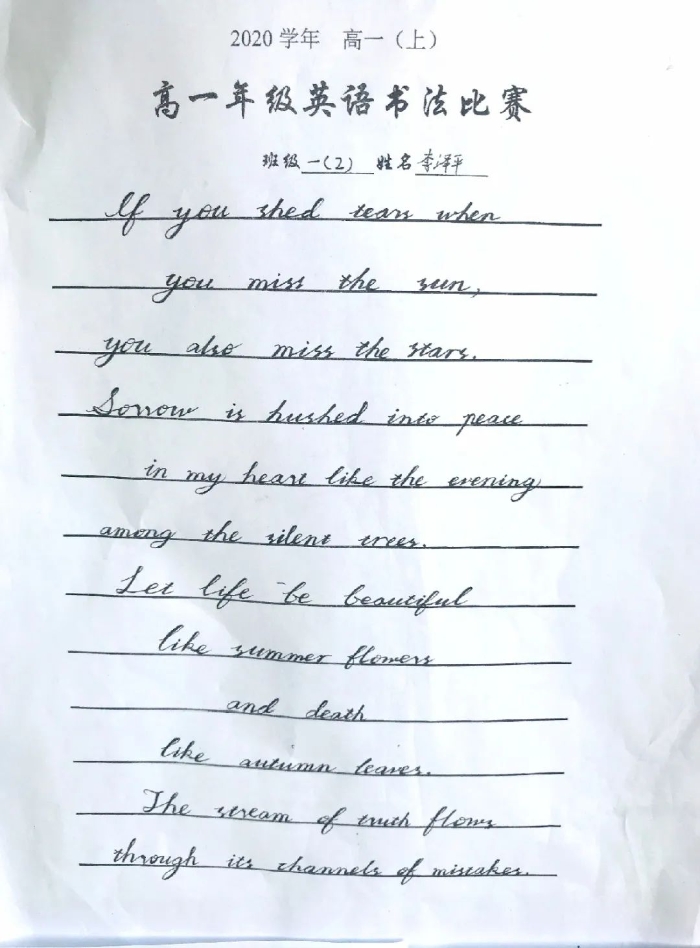 2020 学年 高一（上）
高一年级英语书法比赛
班级 一(2) 姓名 李泽平
If you shed tears when
you miss the sun,
you also miss the stars.
Sorrow is hushed into peace
in my heart like the evening
among the silent trees.
Let life be beautiful
like summer flowers
and death
like autumn leaves.
The stream of truth flows
through its channels of mistakes.